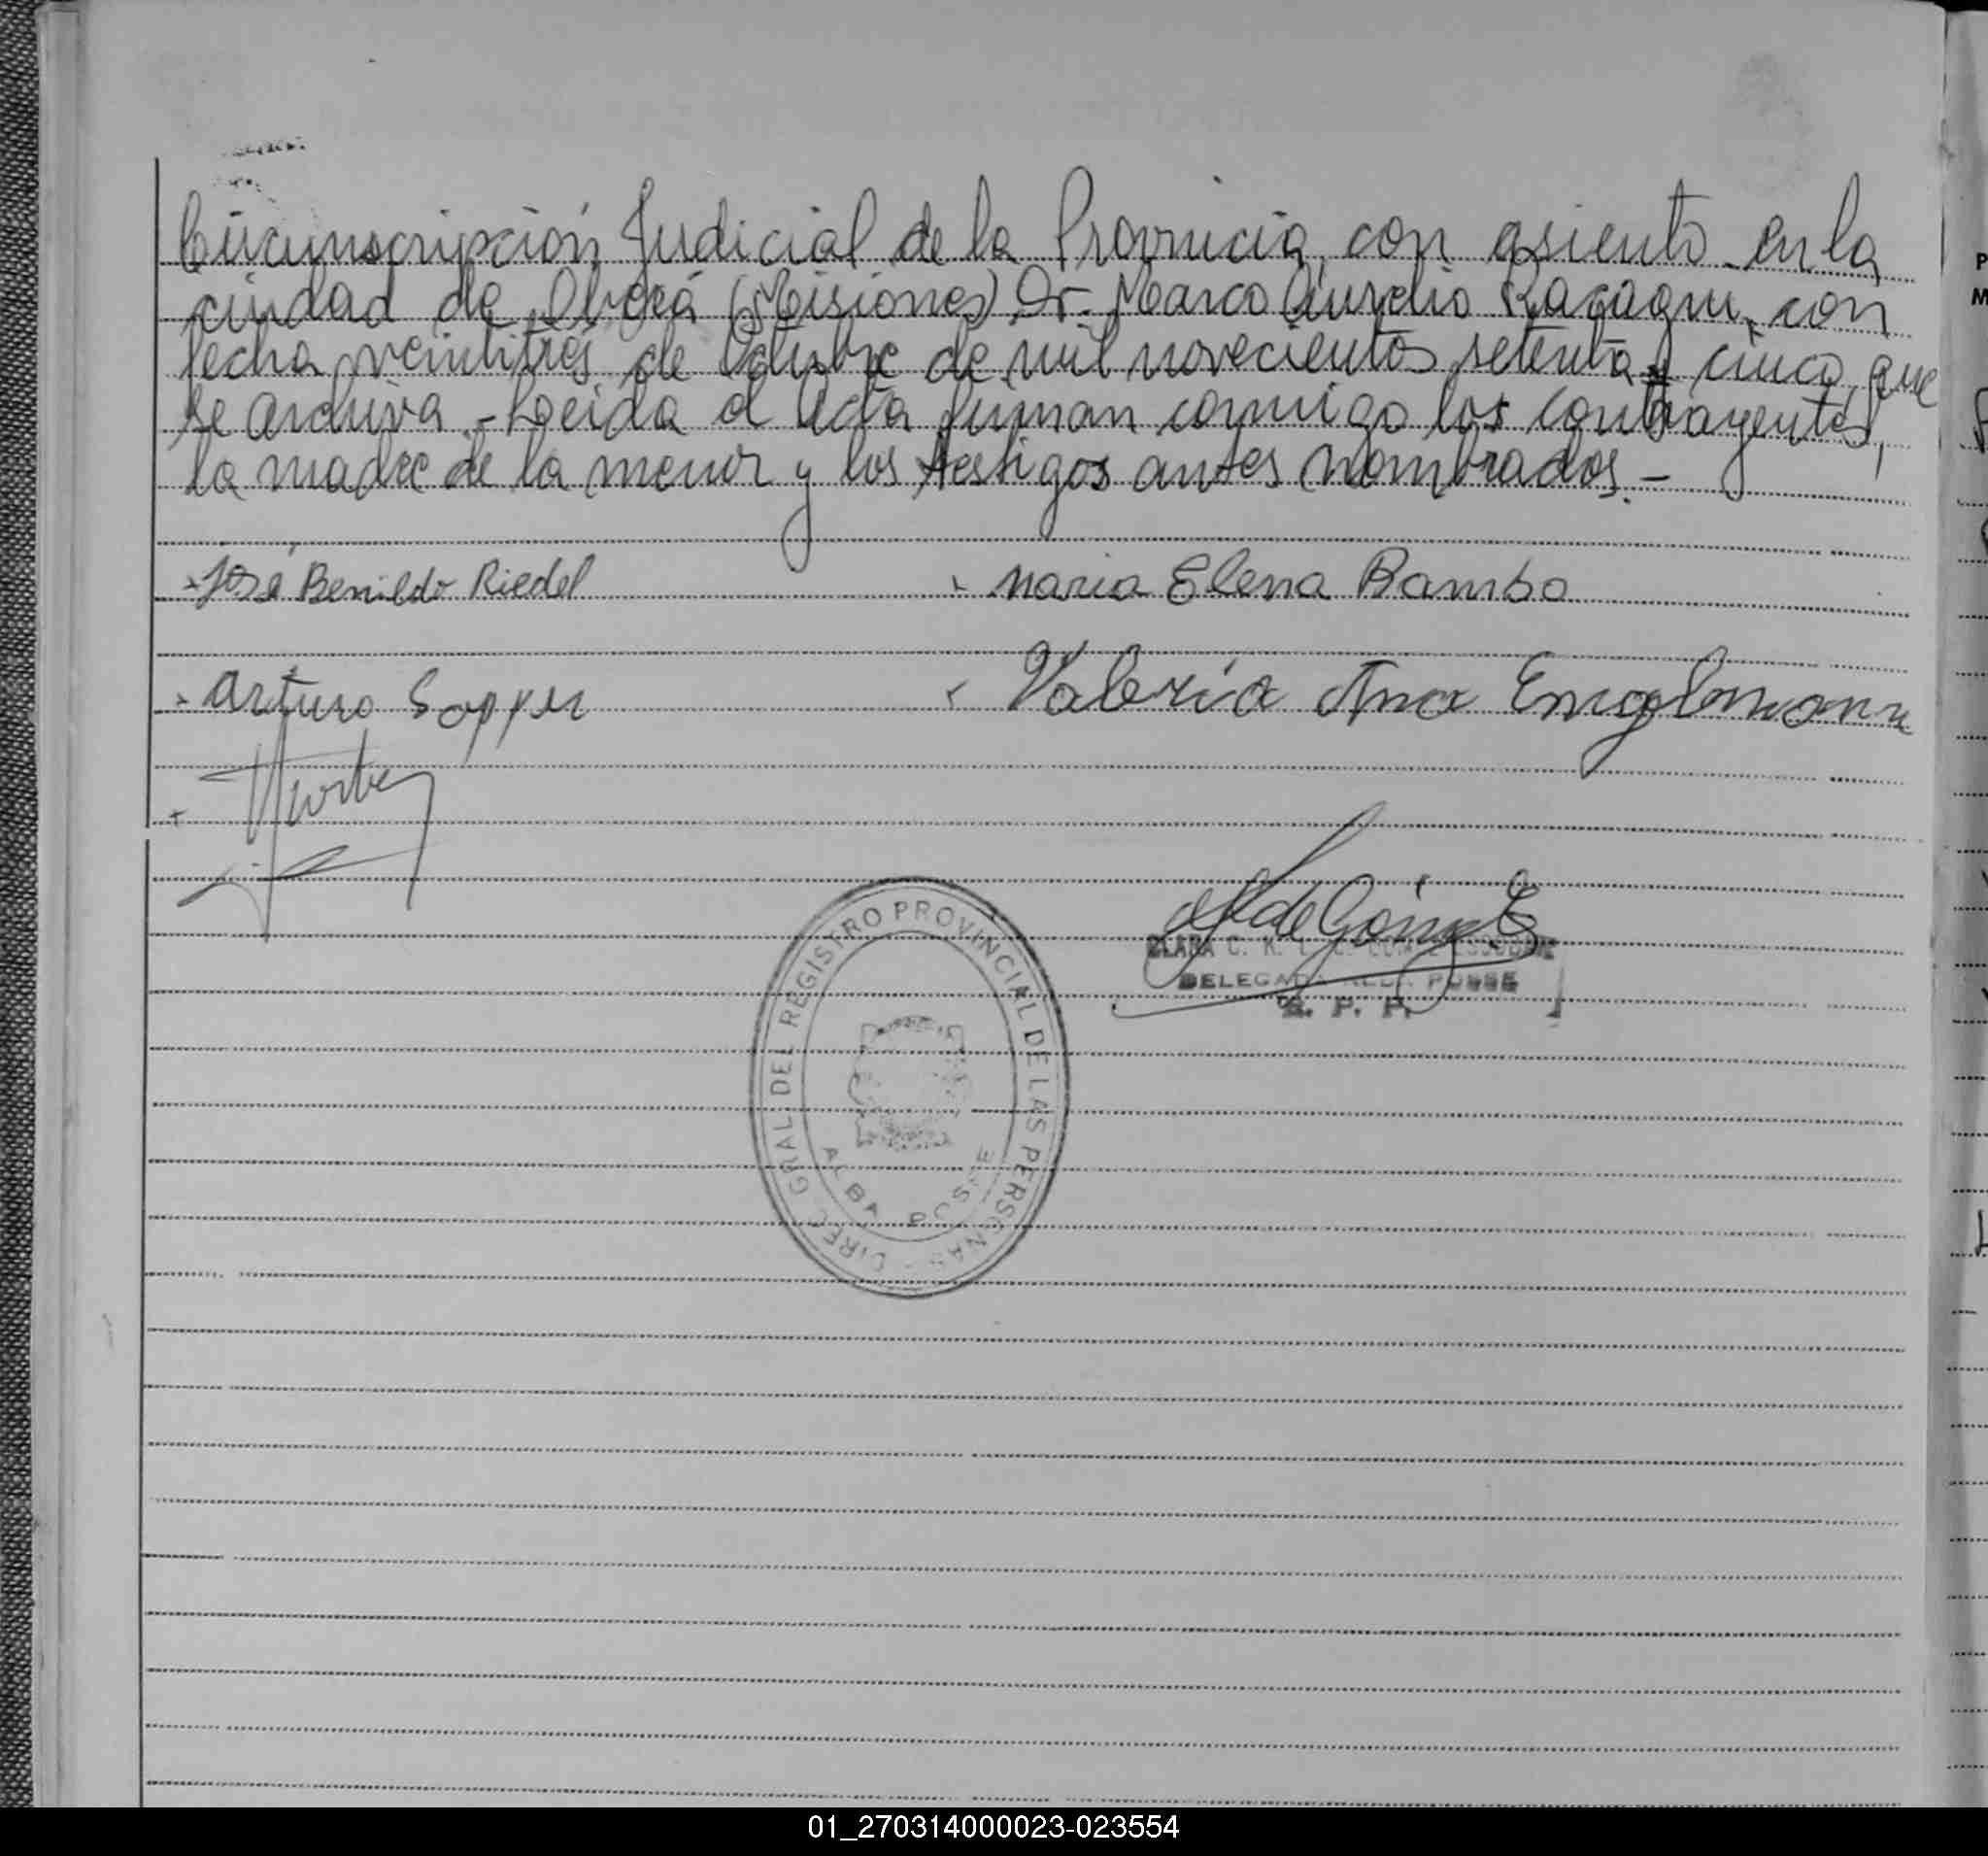 Circunscripción Judicial de la Provincia, con asiento en la
ciudad de Oberá (Misiones) Dr. Marco Aurelio Racagni, con
fecha veintitrés de Octubre de mil novecientos setenta y cinco, que
se archiva.- Leida el Acta firman conmigo los contrayentes,
la madre de la menor y los testigos antes nombrados.-
José Benildo Riedel
Maria Elena Bambo
Arturo Sopper
Valeria Ana Englemann
DIREC. GRAL DEL REGISTRO PROVINCIAL DE LAS PERSONAS
ALBA POSSE
CLARA C. K.
DELEGADA ALBA POSSE
R. P. P.
01_270314000023-023554